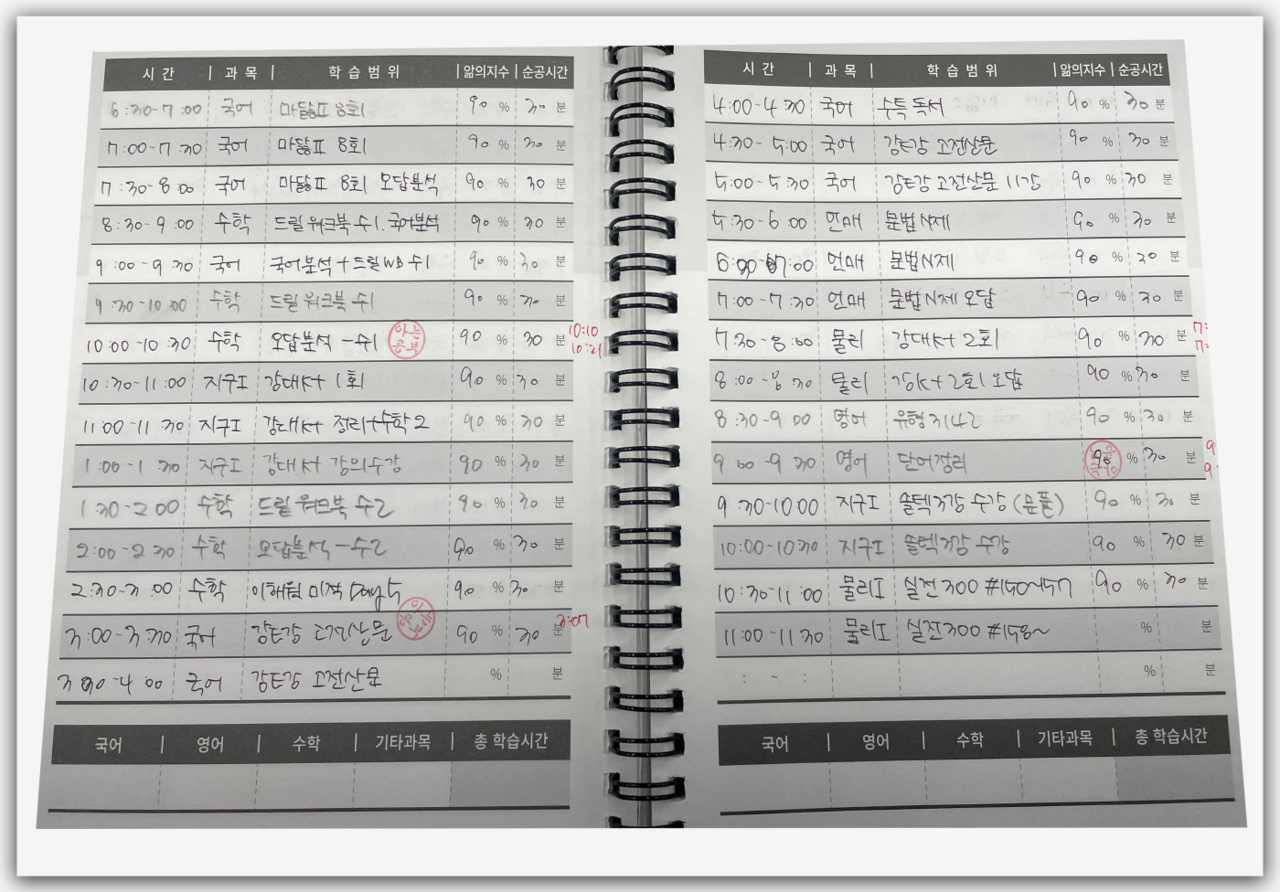 시 간 | 과 목 | 학 습 범 위 | 앎의지수 | 순공시간
6:30-7:00 국어 마닳Ⅱ 8회 90 % 30 분
7:00-7:30 국어 마닳Ⅱ 8회 90 % 30 분
7:30-8:00 국어 마닳Ⅱ 8회 오답분석 90 % 30 분
8:30-9:00 수학 드릴 워크북 수1. 국어분석 90 % 30 분
9:00-9:30 국어 국어분석+드릴WB 수1 90 % 30 분
9:30-10:00 수학 드릴 워크북 수1 90 % 30 분
10:00-10:30 수학 오답분석 -수1 90 % 30 분 10:10
10:21
10:30-11:00 지구Ⅰ 강대K+ 1회 90 % 30 분
11:00-11:30 지구Ⅰ 강대K+ 정리+수학2 90 % 30 분
1:00-1:30 지구Ⅰ 강대K+ 강의수강 90 % 30 분
1:30-2:00 수학 드릴 워크북 수2 90 % 30 분
2:00-2:30 수학 오답분석 -수2 90 % 30 분
2:30-3:00 수학 이해원 미적 Day5 90 % 30 분
3:00-3:30 국어 강E강 고전산문 90 % 30 분 3:07
3:30-4:00 국어 강E강 고전산문 % 분
국어 | 영어 | 수학 | 기타과목 | 총 학습시간
시 간 | 과 목 | 학 습 범 위 | 앎의지수 | 순공시간
4:00-4:30 국어 수특 독서 90 % 30 분
4:30-5:00 국어 강E강 고전산문 90 % 30 분
5:00-5:30 국어 강E강 고전산문 11강 90 % 30 분
5:30-6:00 언매 문법N제 90 % 30 분
6:00-7:00 언매 문법N제 90 % 30 분
7:00-7:30 언매 문법N제 오답 90 % 30 분
7:30-8:00 물리 강대K+ 2회 90 % 30 분
8:00-8:30 물리 강K+ 2회 오답 90 % 30 분
8:30-9:00 영어 유형 90 % 30 분
9:00-9:30 영어 단어정리 90 % 30 분
9:30-10:00 지구Ⅰ 솔텍 3강 수강 (문풀) 90 % 30 분
10:00-10:30 지구Ⅰ 솔텍 3강 수강 90 % 30 분
10:30-11:00 물리Ⅰ 실전300 #150~157 90 % 30 분
11:00-11:30 물리Ⅰ 실전300 #158~ % 분
: ~ : % 분
국어 | 영어 | 수학 | 기타과목 | 총 학습시간